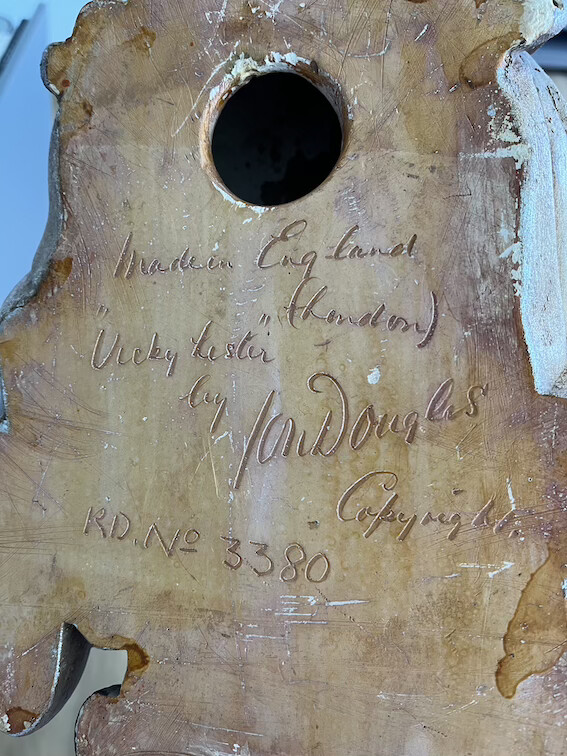 Made in England
(London)
"Vicky Lester"
by Jon Douglas
Copyright.
RD. No 3380